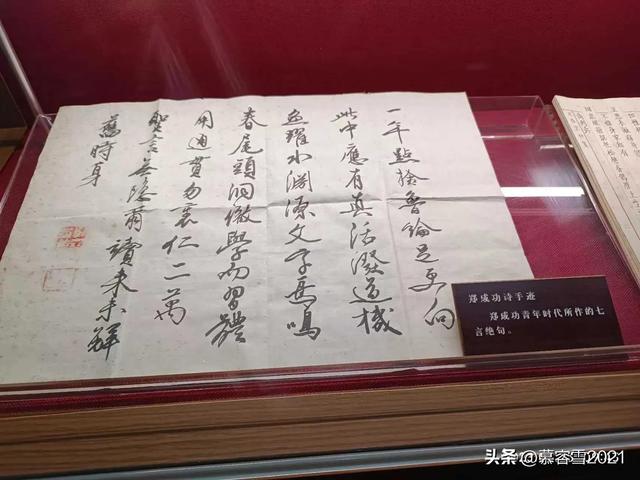 一年點檢魯論足更向
此中應有真活潑道機
魚躍水淵源文字鳥鳴
春尾頭洞徹學而習體
用通貫仁二萬
聖言無隱爾讀來未解
舊時身
郑成功诗手迹
郑成功青年时代所作的七
言绝句。
头条@慕容雪2021